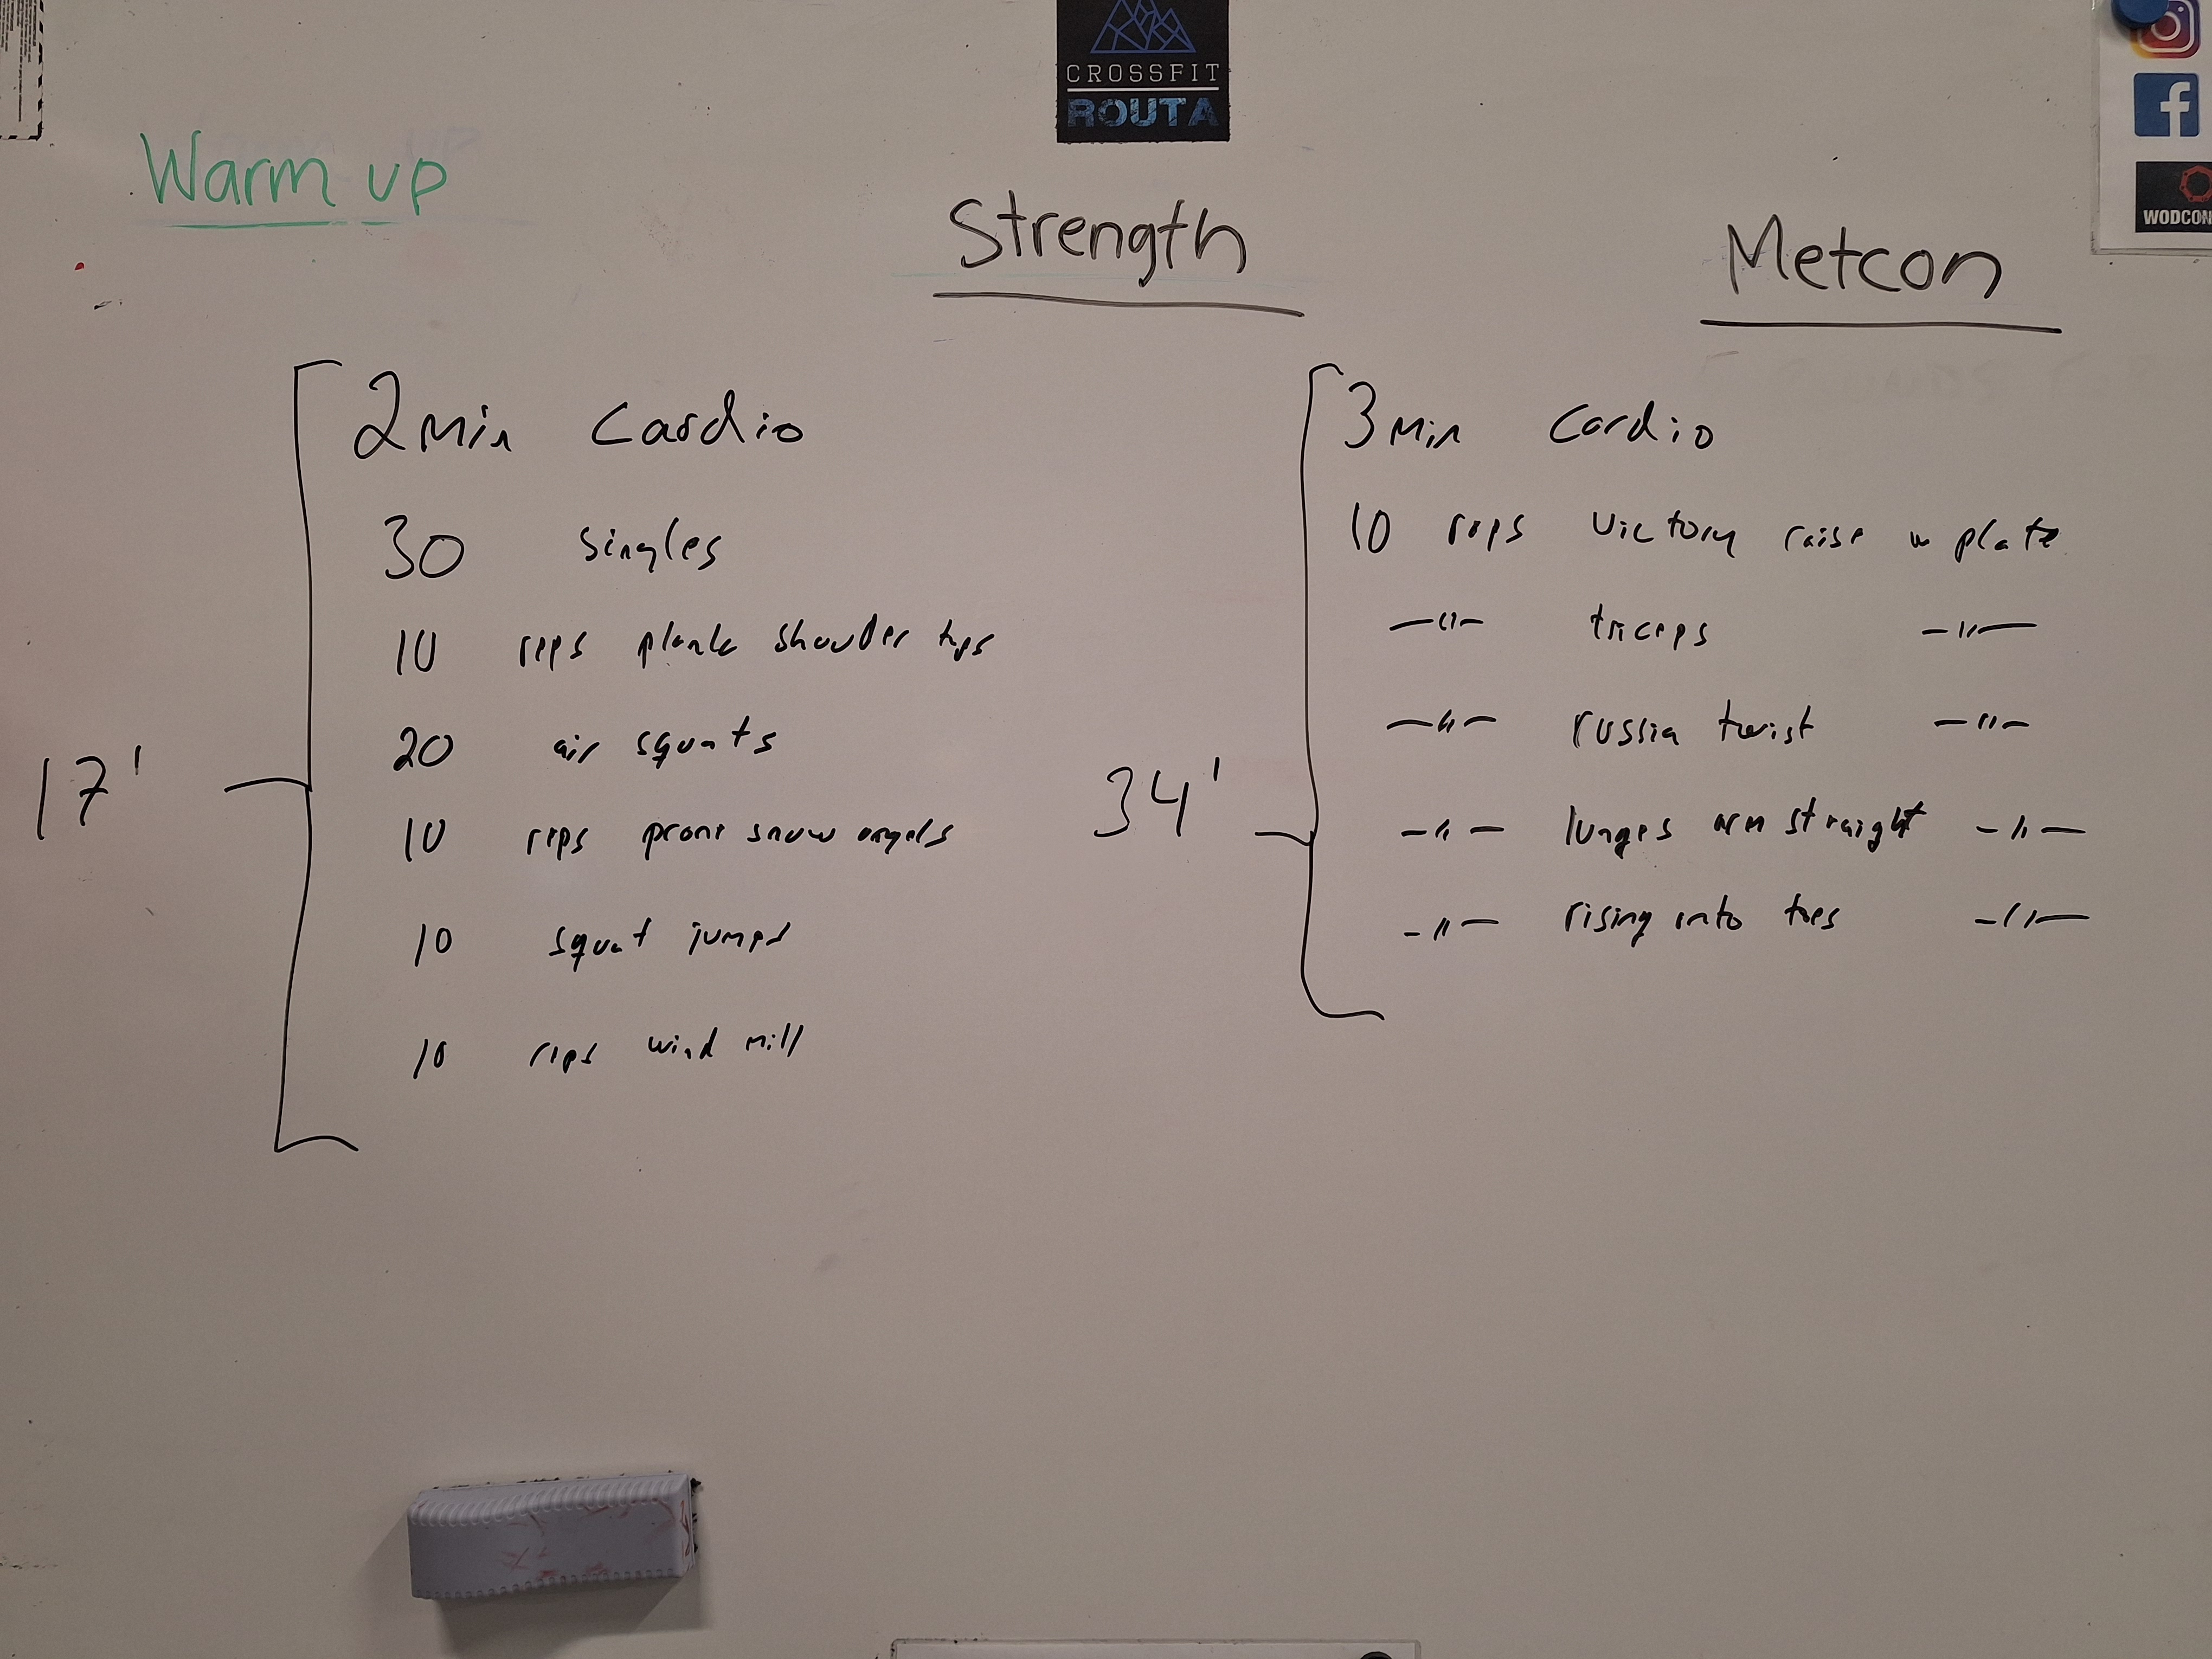 CROSSFIT
ROUTA
WODCON
Warm up
Strength
Metcon
17'
2 min cardio
30 singles
10 reps plank shoulder tups
20 air squats
10 reps prone snow angels
10 squat jumps
10 reps wind mill
34'
3 min cardio
10 reps victory raise w plate
—"— triceps —"—
—"— russia twist —"—
—"— lunges arm straight —"—
—"— rising into toes —"—